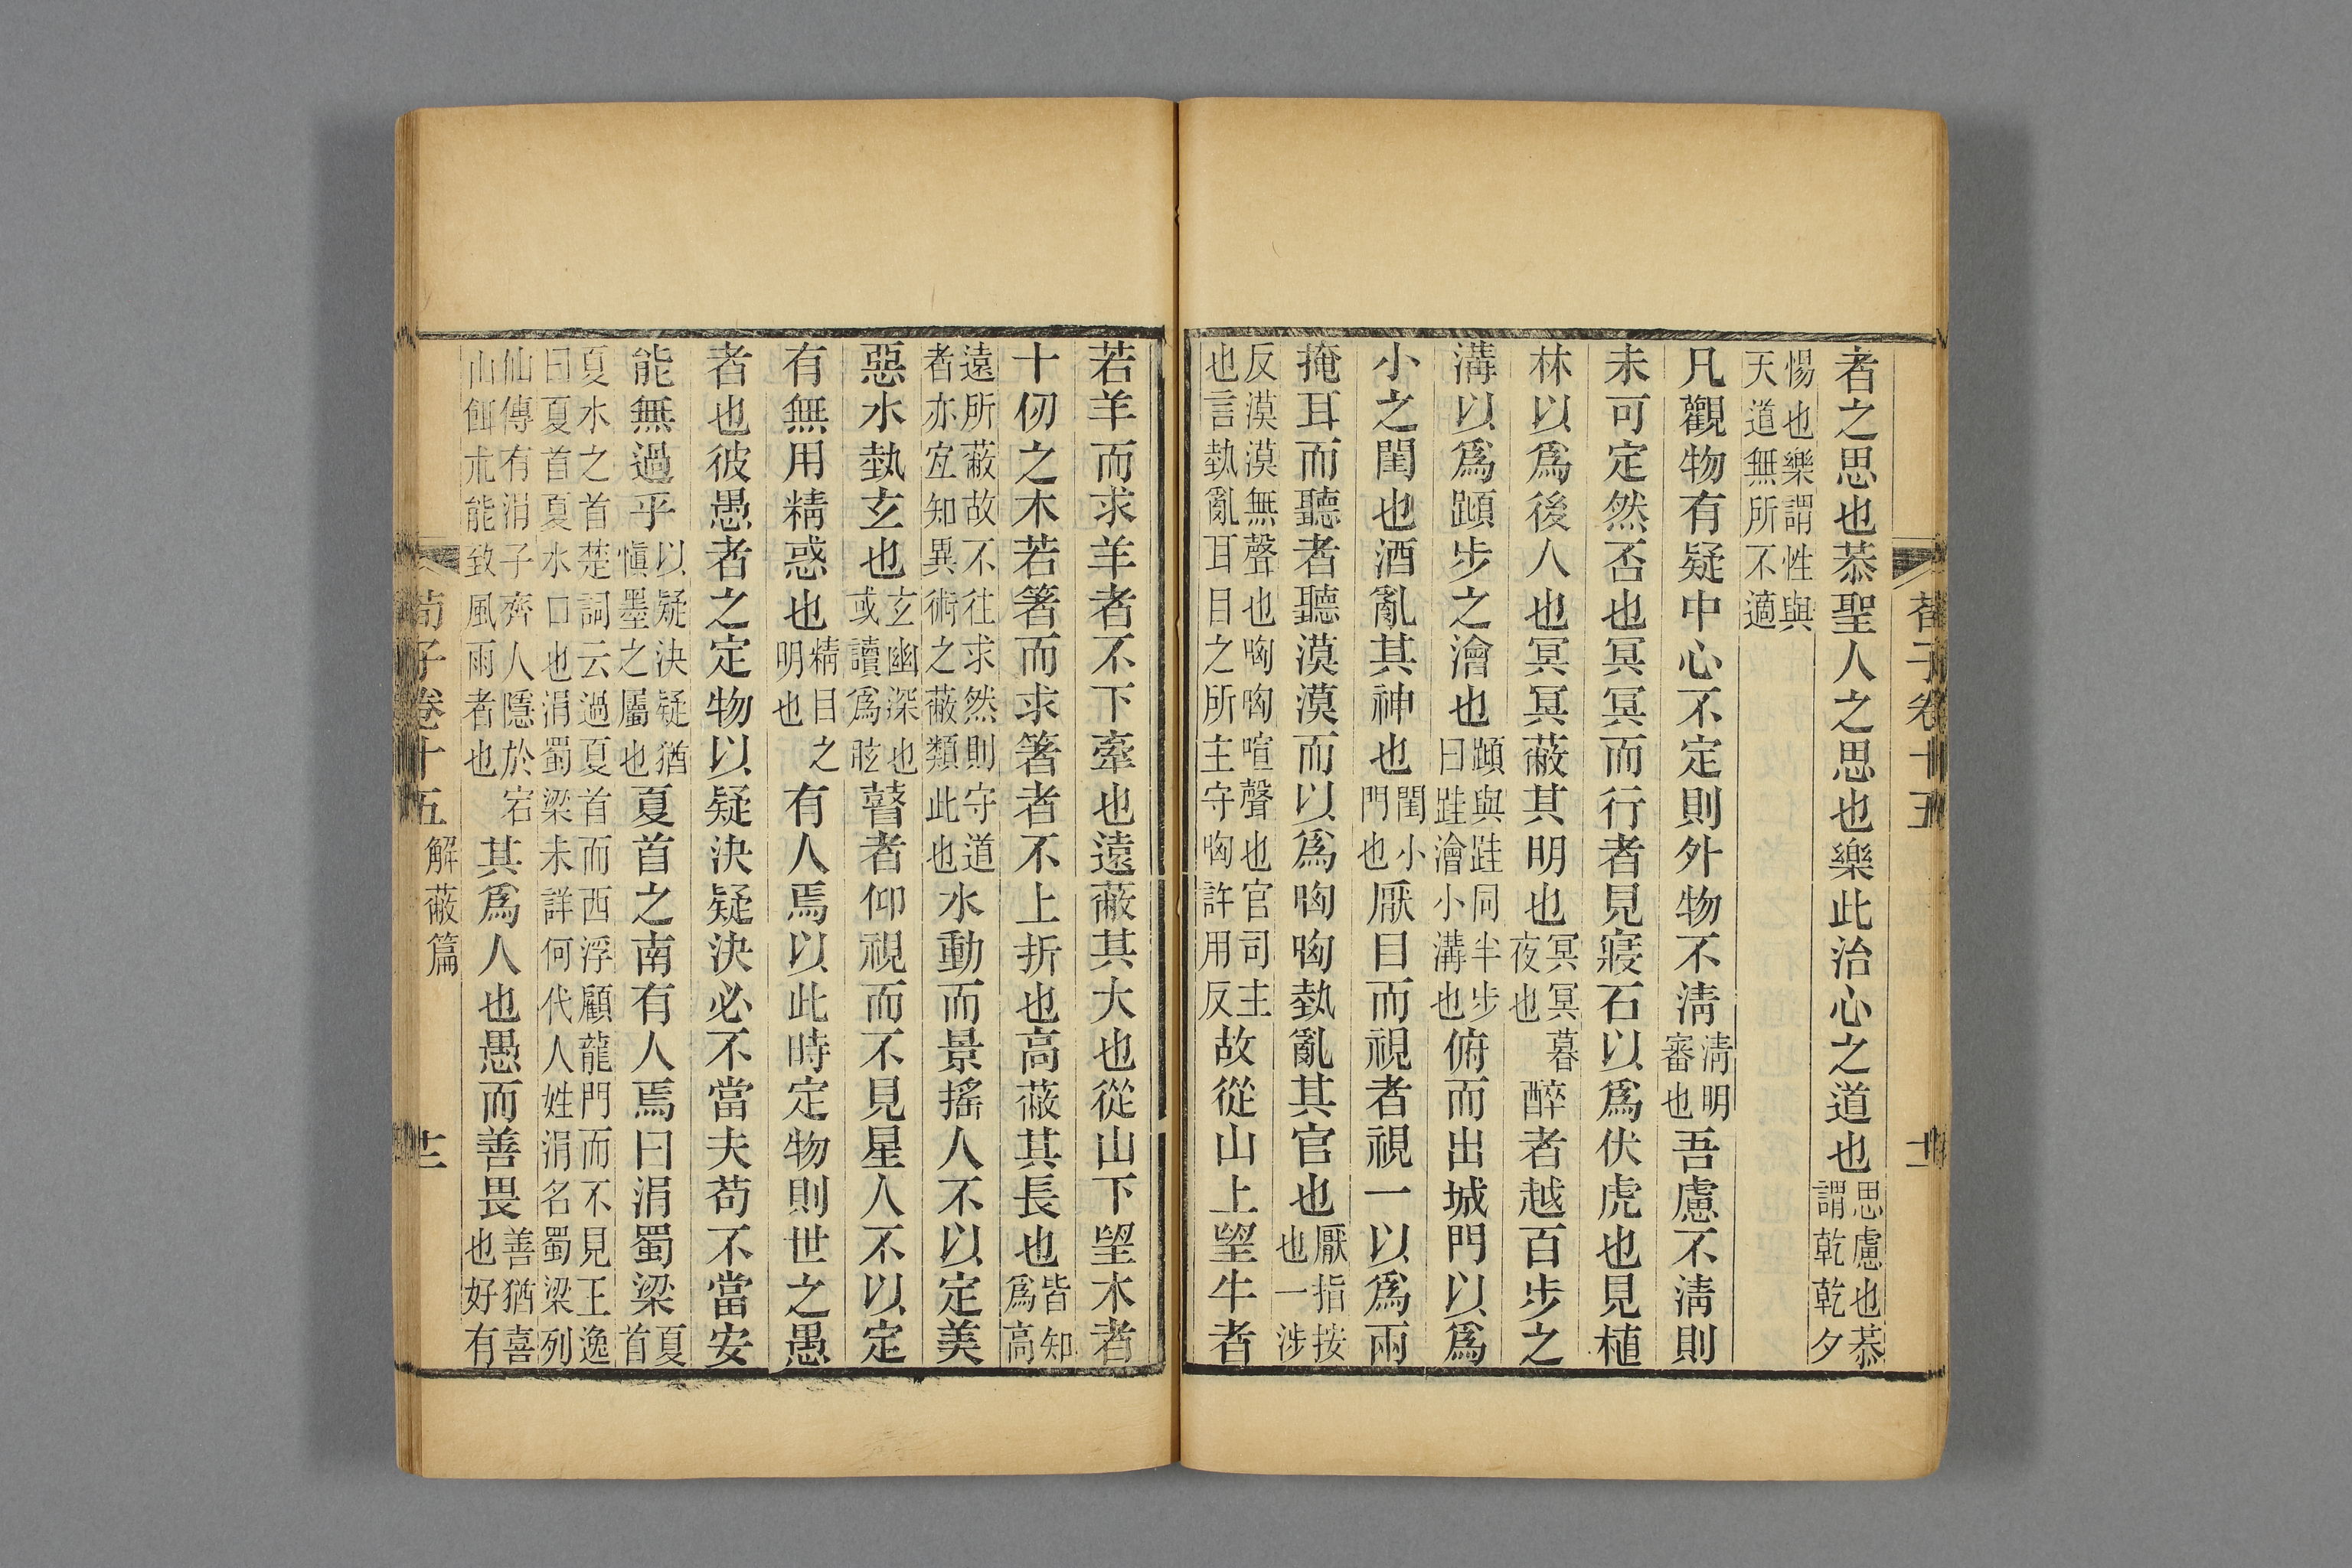 荀子卷十五
者之思也恭聖人之思也樂此治心之道也思慮也恭謂乾乾夕
惕也樂謂性與天道無所不適
凡觀物有疑中心不定則外物不清清明審也吾慮不清則
未可定然否也冥冥而行者見寢石以爲伏虎也見植
林以爲後人也冥冥蔽其明也冥冥暮夜也醉者越百步之
溝以爲蹞步之澮也蹞與跬同半步曰跬澮小溝也俯而出城門以爲
小之閨也酒亂其神也閨小門也厭目而視者視一以爲兩
掩耳而聽者聽漠漠而以爲哅哅埶亂其官也厭指按也一涉
反漠漠無聲也哅哅喧聲也官司主也言埶亂耳目之所主守哅許用反故從山上望牛者
若羊而求羊者不下牽也遠蔽其大也從山下望木者
十仞之木若箸而求箸者不上折也高蔽其長也皆知爲高
遠所蔽故不往求然則守道者亦宜知異術之蔽類此也水動而景搖人不以定美
惡水埶玄也玄幽深也或讀爲眩瞽者仰視而不見星人不以定
有無用精惑也精目之明也有人焉以此時定物則世之愚
者也彼愚者之定物以疑決疑決必不當夫苟不當安
能無過乎以疑決疑猶愼墨之屬也夏首之南有人焉曰涓蜀梁夏首
夏水之首楚詞云過夏首而西浮顧龍門而不見王逸曰夏首夏水口也涓蜀梁未詳何代人姓涓名蜀梁列
仙傳有涓子齊人隱於宕山餌朮能致風雨者也其爲人也愚而善畏善猶喜也好有
荀子卷十五 解蔽篇